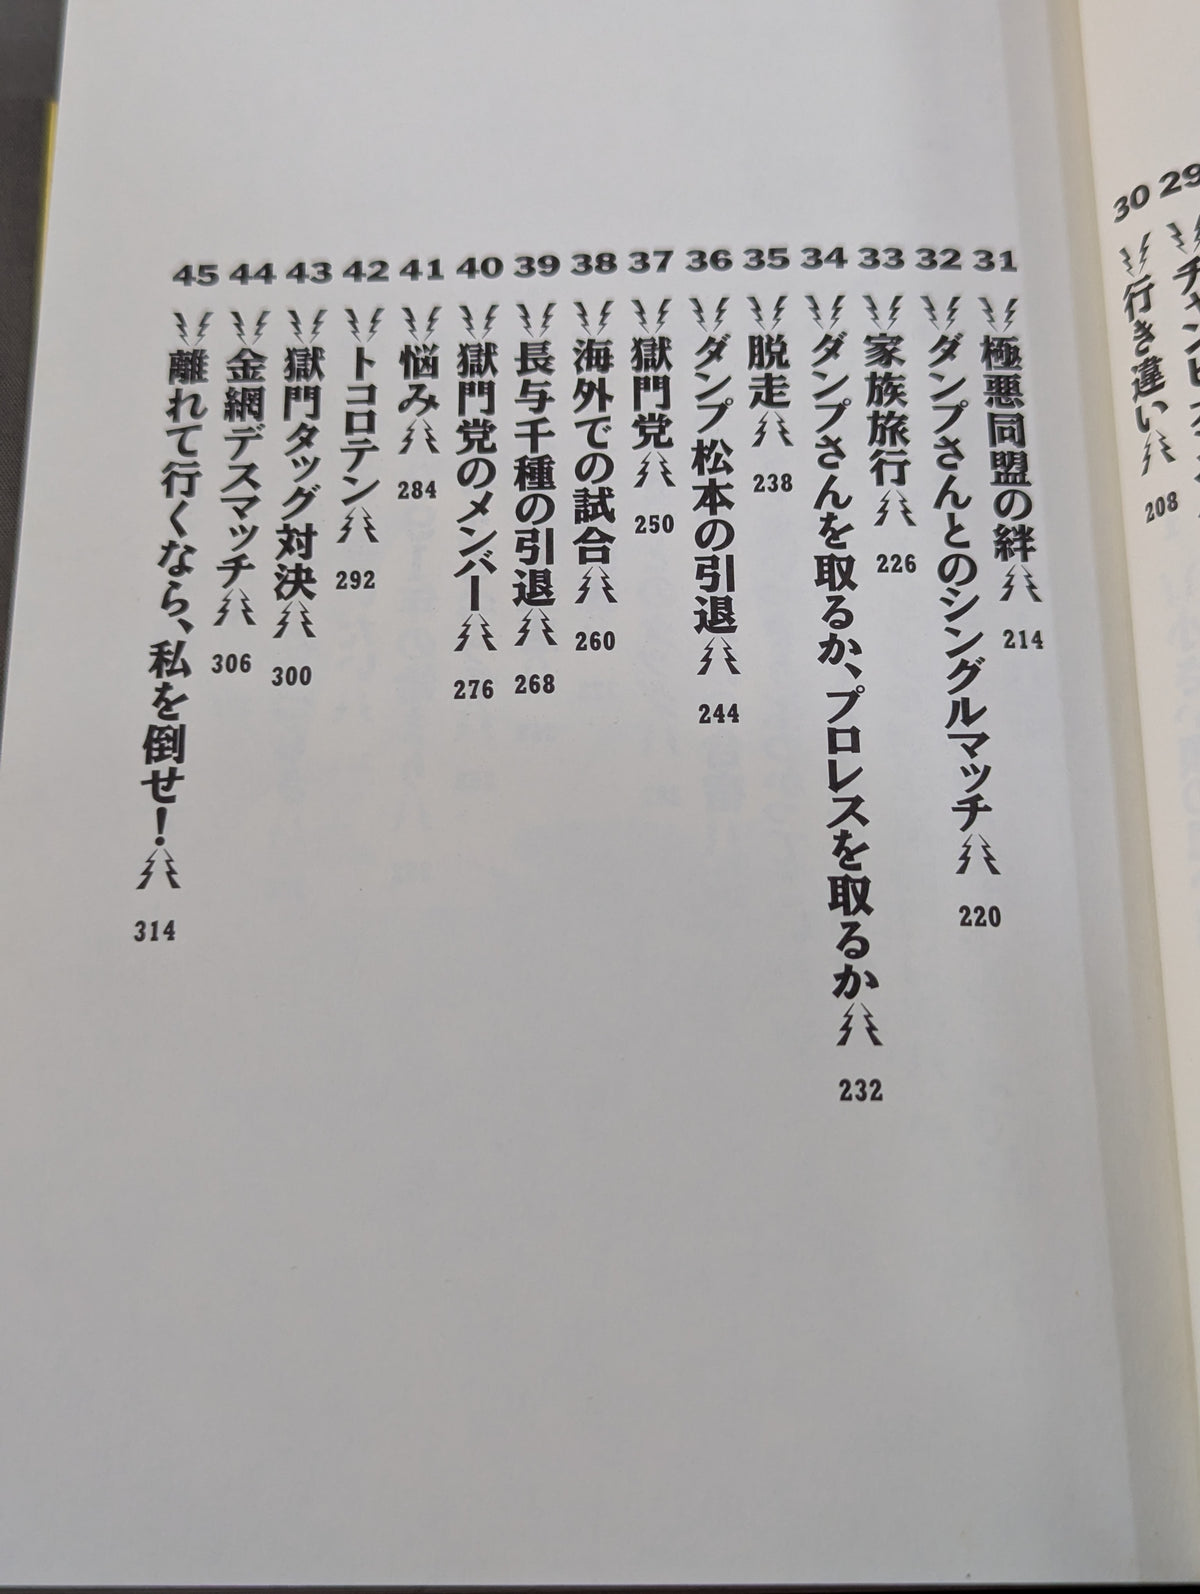 29
30 行き違い 208
31 極悪同盟の絆 214
32 ダンプさんとのシングルマッチ 220
33 家族旅行 226
34 ダンプさんを取るか、プロレスを取るか 232
35 脱走 238
36 ダンプ松本の引退 244
37 獄門党 250
38 海外での試合 260
39 長与千種の引退 268
40 獄門党のメンバー 276
41 悩み 284
42 トコロテン 292
43 獄門タッグ対決 300
44 金網デスマッチ 306
45 離れて行くなら、私を倒せ! 314